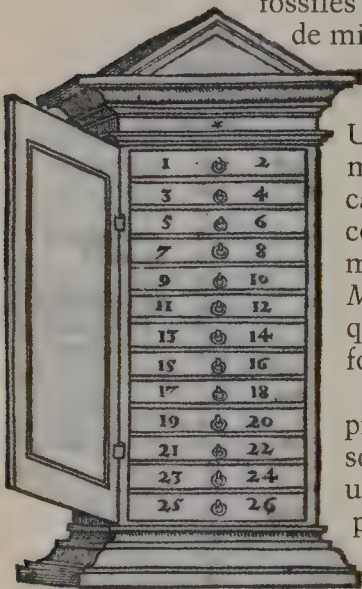 fossiles
de mi
*
1 2
3 4
5 6
7 8
9 10
11 12
13 14
15 16
17 18
19 20
21 22
23 24
25 26
U
m
ca
co
m
M
q
fo
p
so
u
p